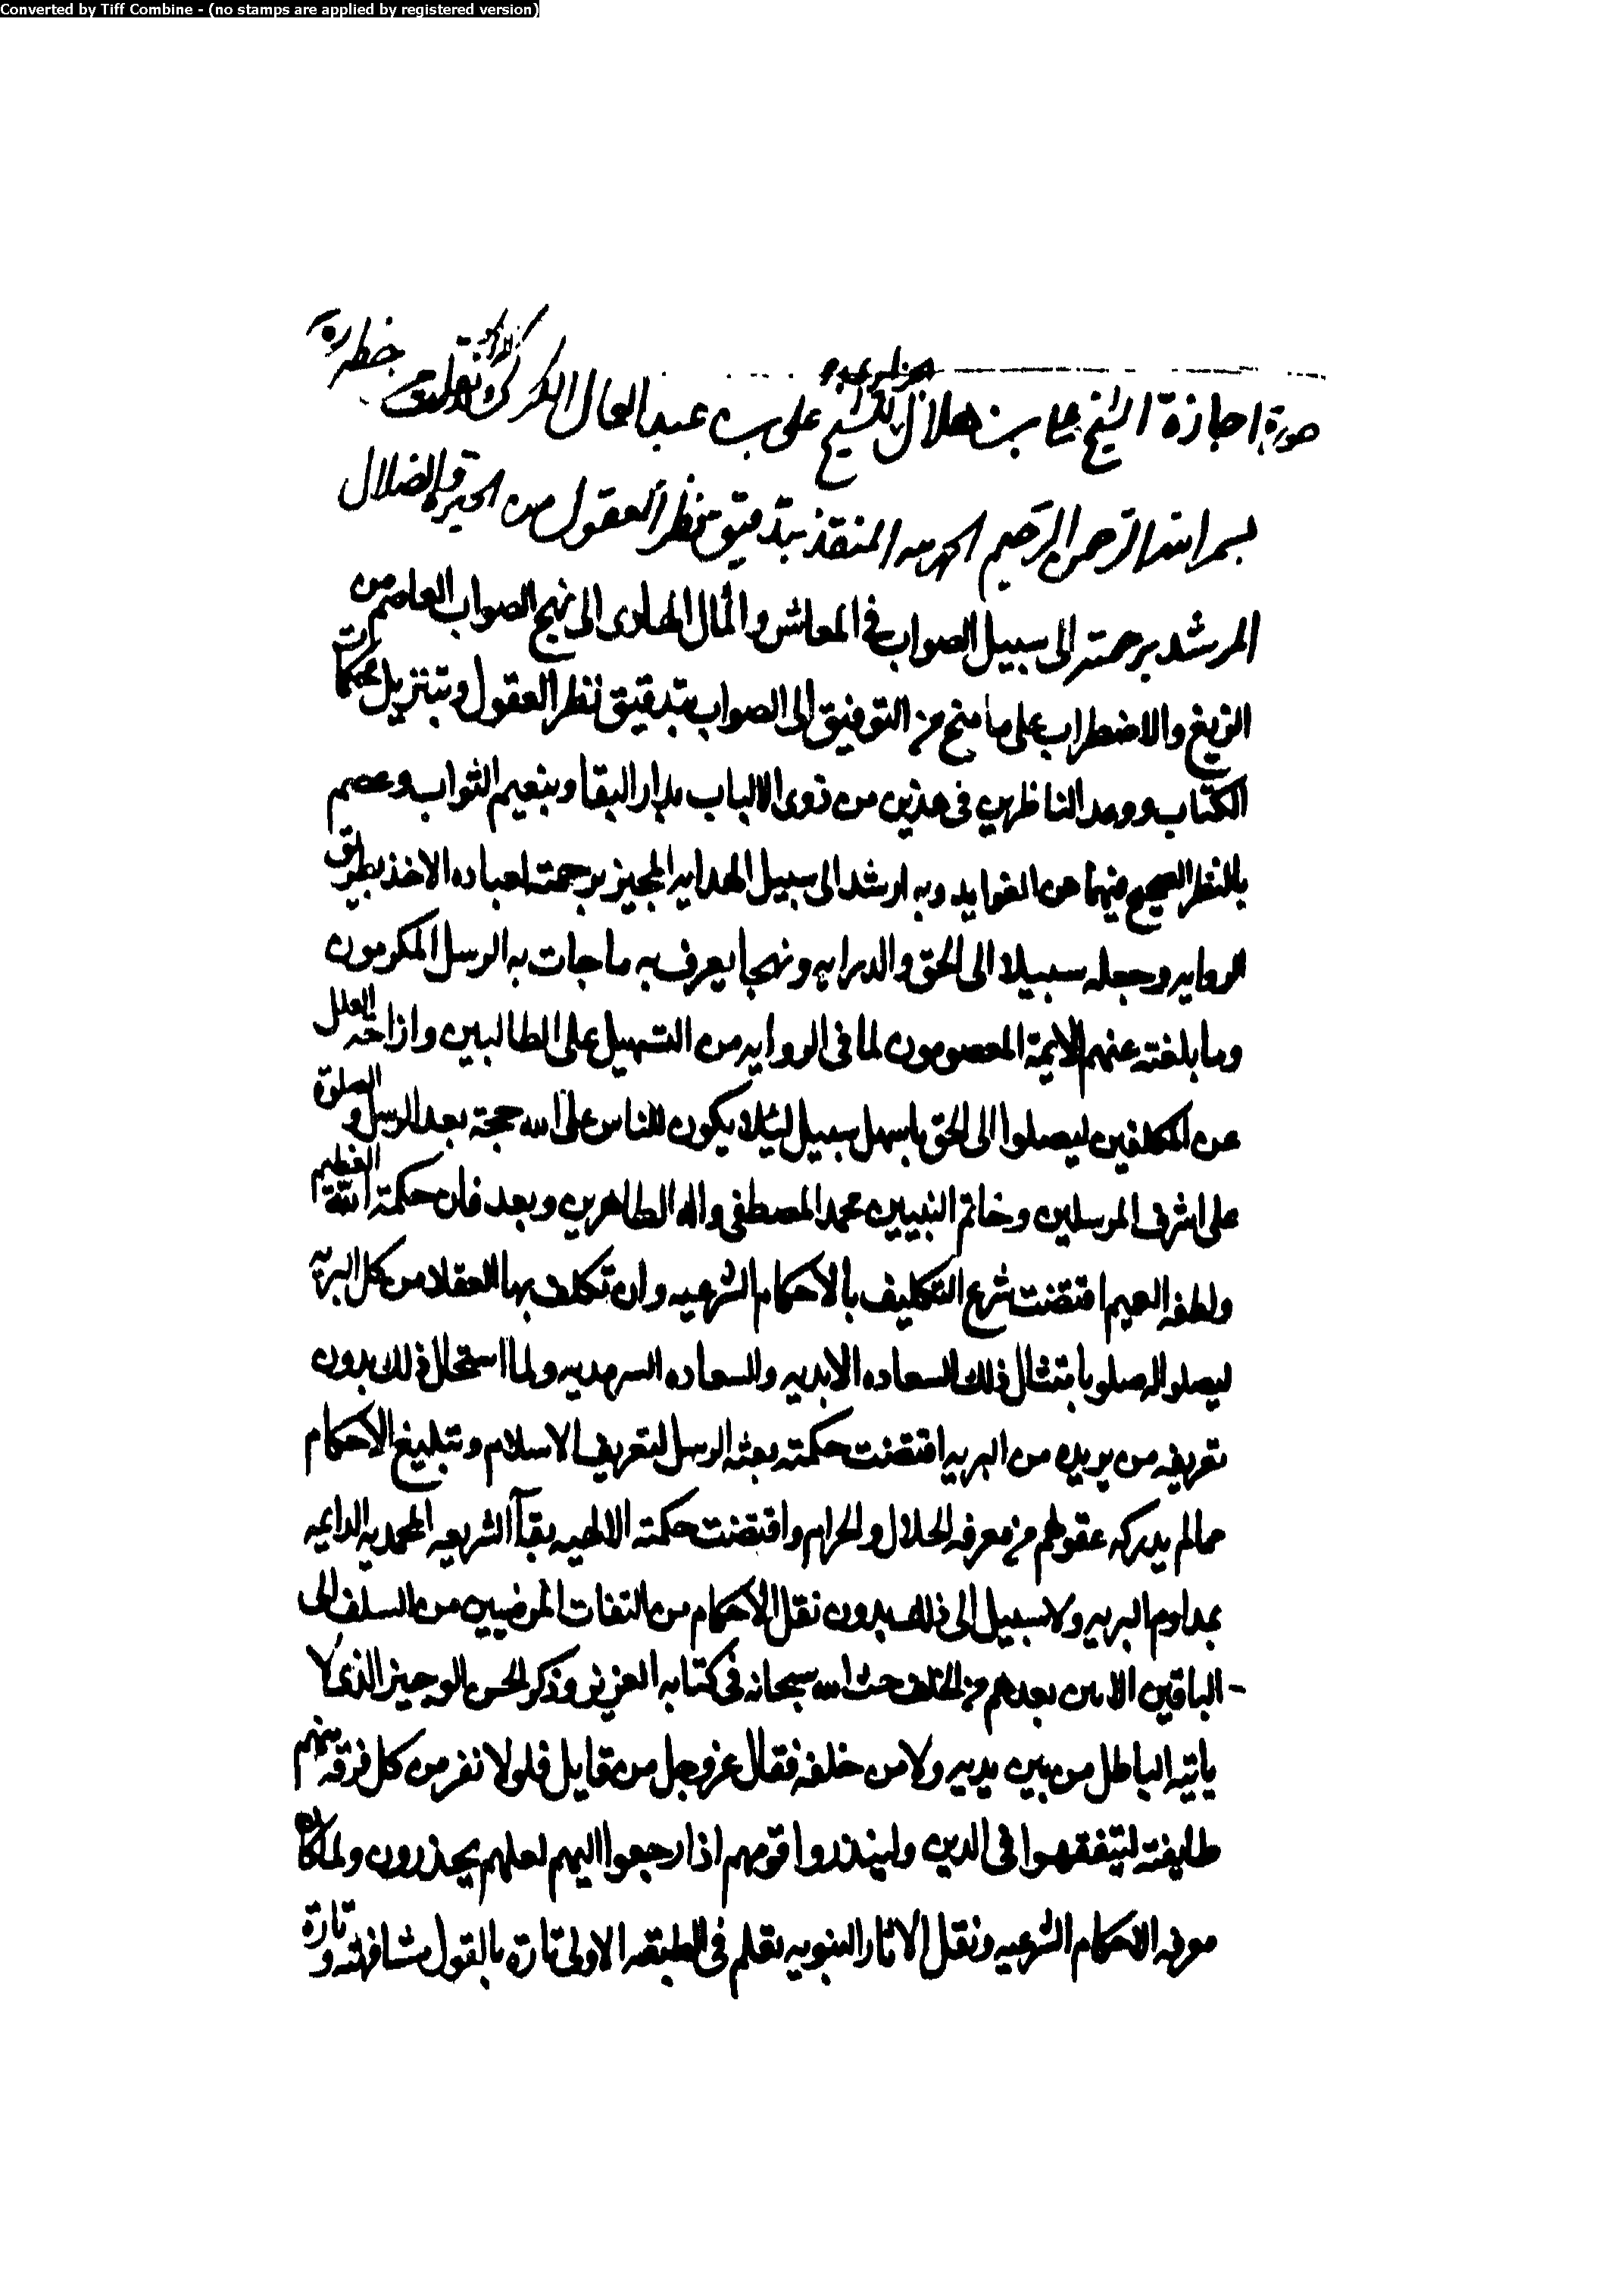 Converted by Tiff Combine - (no stamps are applied by registered version)
صورة اجازة الشيخ علي بن هلال للشيخ علي بن عبد العال الكركي نقلت من خطه ره
بسم الله الرحمن الرحيم الحمد لله المنقذ بتدقيق نظر العقول من الحيرة والضلال
المرشد برحمته الى سبيل الصواب في المعاش والمأل الهادى الى نهج الصواب العاصم من
الزيغ والاضطراب على ما منح من التوفيق الى الصواب بتدقيق نظر العقول وبتنزيل محكمات
الكتاب ووعد الناظرين في هذين من ذوى الالباب بدار البقا وبنعيم الثواب وعصم
بالنظر الصحيح فيهما عن الغوايه وبه ارشد الى سبيل الهدايه المجيز برحمته لعباده الاخذ بطريق
الروايه وجعله سبيلا الى الحق والدرايه ونهجا يعرف به ما جات به الرسل المكرمون
وما بلغته عنهم الايمة المعصومون لما في الروايه من التسهيل على الطالبين وازاحة العلل
عن المكلفين ليصلوا الى الحق باسهل سبيل لئلا يكون للناس على الله حجة بعد الرسل والصلوة
على اشرف المرسلين وخاتم النبيين محمد المصطفى واله الطاهرين وبعد فان حكمة الله العظيم
ولطفه العميم اقتضت شرع التكليف بالاحكام الشرعيه وان تكلف بها العقلا من كل البريه
ليصلوا بامتثال ذلك السعاده الابديه والسعاده السرمديه ولما استحال ذلك بدون
تعريفه من يريده من البريه اقتضت حكمته بعثه الرسل لتعريف الاسلام وتبليغ الاحكام
مما لم يدركه عقولهم من معرفه الحلال والحرام واقتضت حكمته الالهيه بقآ الشريعه المحمديه الدايمه
بمداوم البريه ولا سبيل الى ذلك بدون نقل الاحكام من الثقات المرضيين من السلف الى
الباقين بعدهم من الخلف حث الله سبحانه في كتابه العزيز وذكر الوجيز الذى لا
ياتيه الباطل من بين يديه ولا من خلفه فقال عز وجل من قايل فلولا نفر من كل فرقه منهم
طايفة ليتفقهوا في الدين ولينذروا قومهم اذا رجعوا اليهم لعلهم يحذرون ولما كان
معرفه الاحكام الشرعيه ونقل الاثار النبويه في الطبقه الاولى تارة بالقول مشافهة وتارة